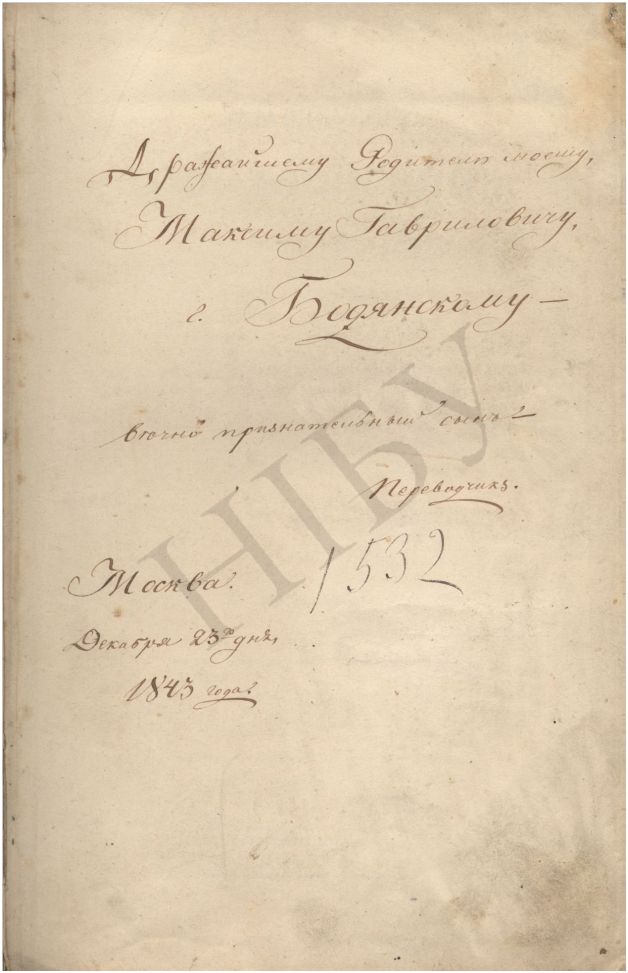 Дражайшему Родителю моему,
Максиму Гавриловичу,
г. Бодянскому —
вѣчно признательный сынъ —
Переводчикъ.
1532
Москва.
Декабря 23го дня,
1843 года.
НІБУ